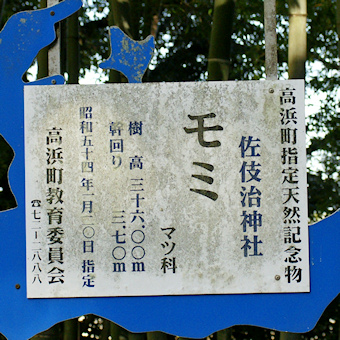 高浜町指定天然記念物
佐伎治神社
モミ
マツ科
樹高 三十六.〇〇m
幹回り 三.七〇m
昭和五十四年一月二〇日 指定
高浜町教育委員会
☎七二-一八八八